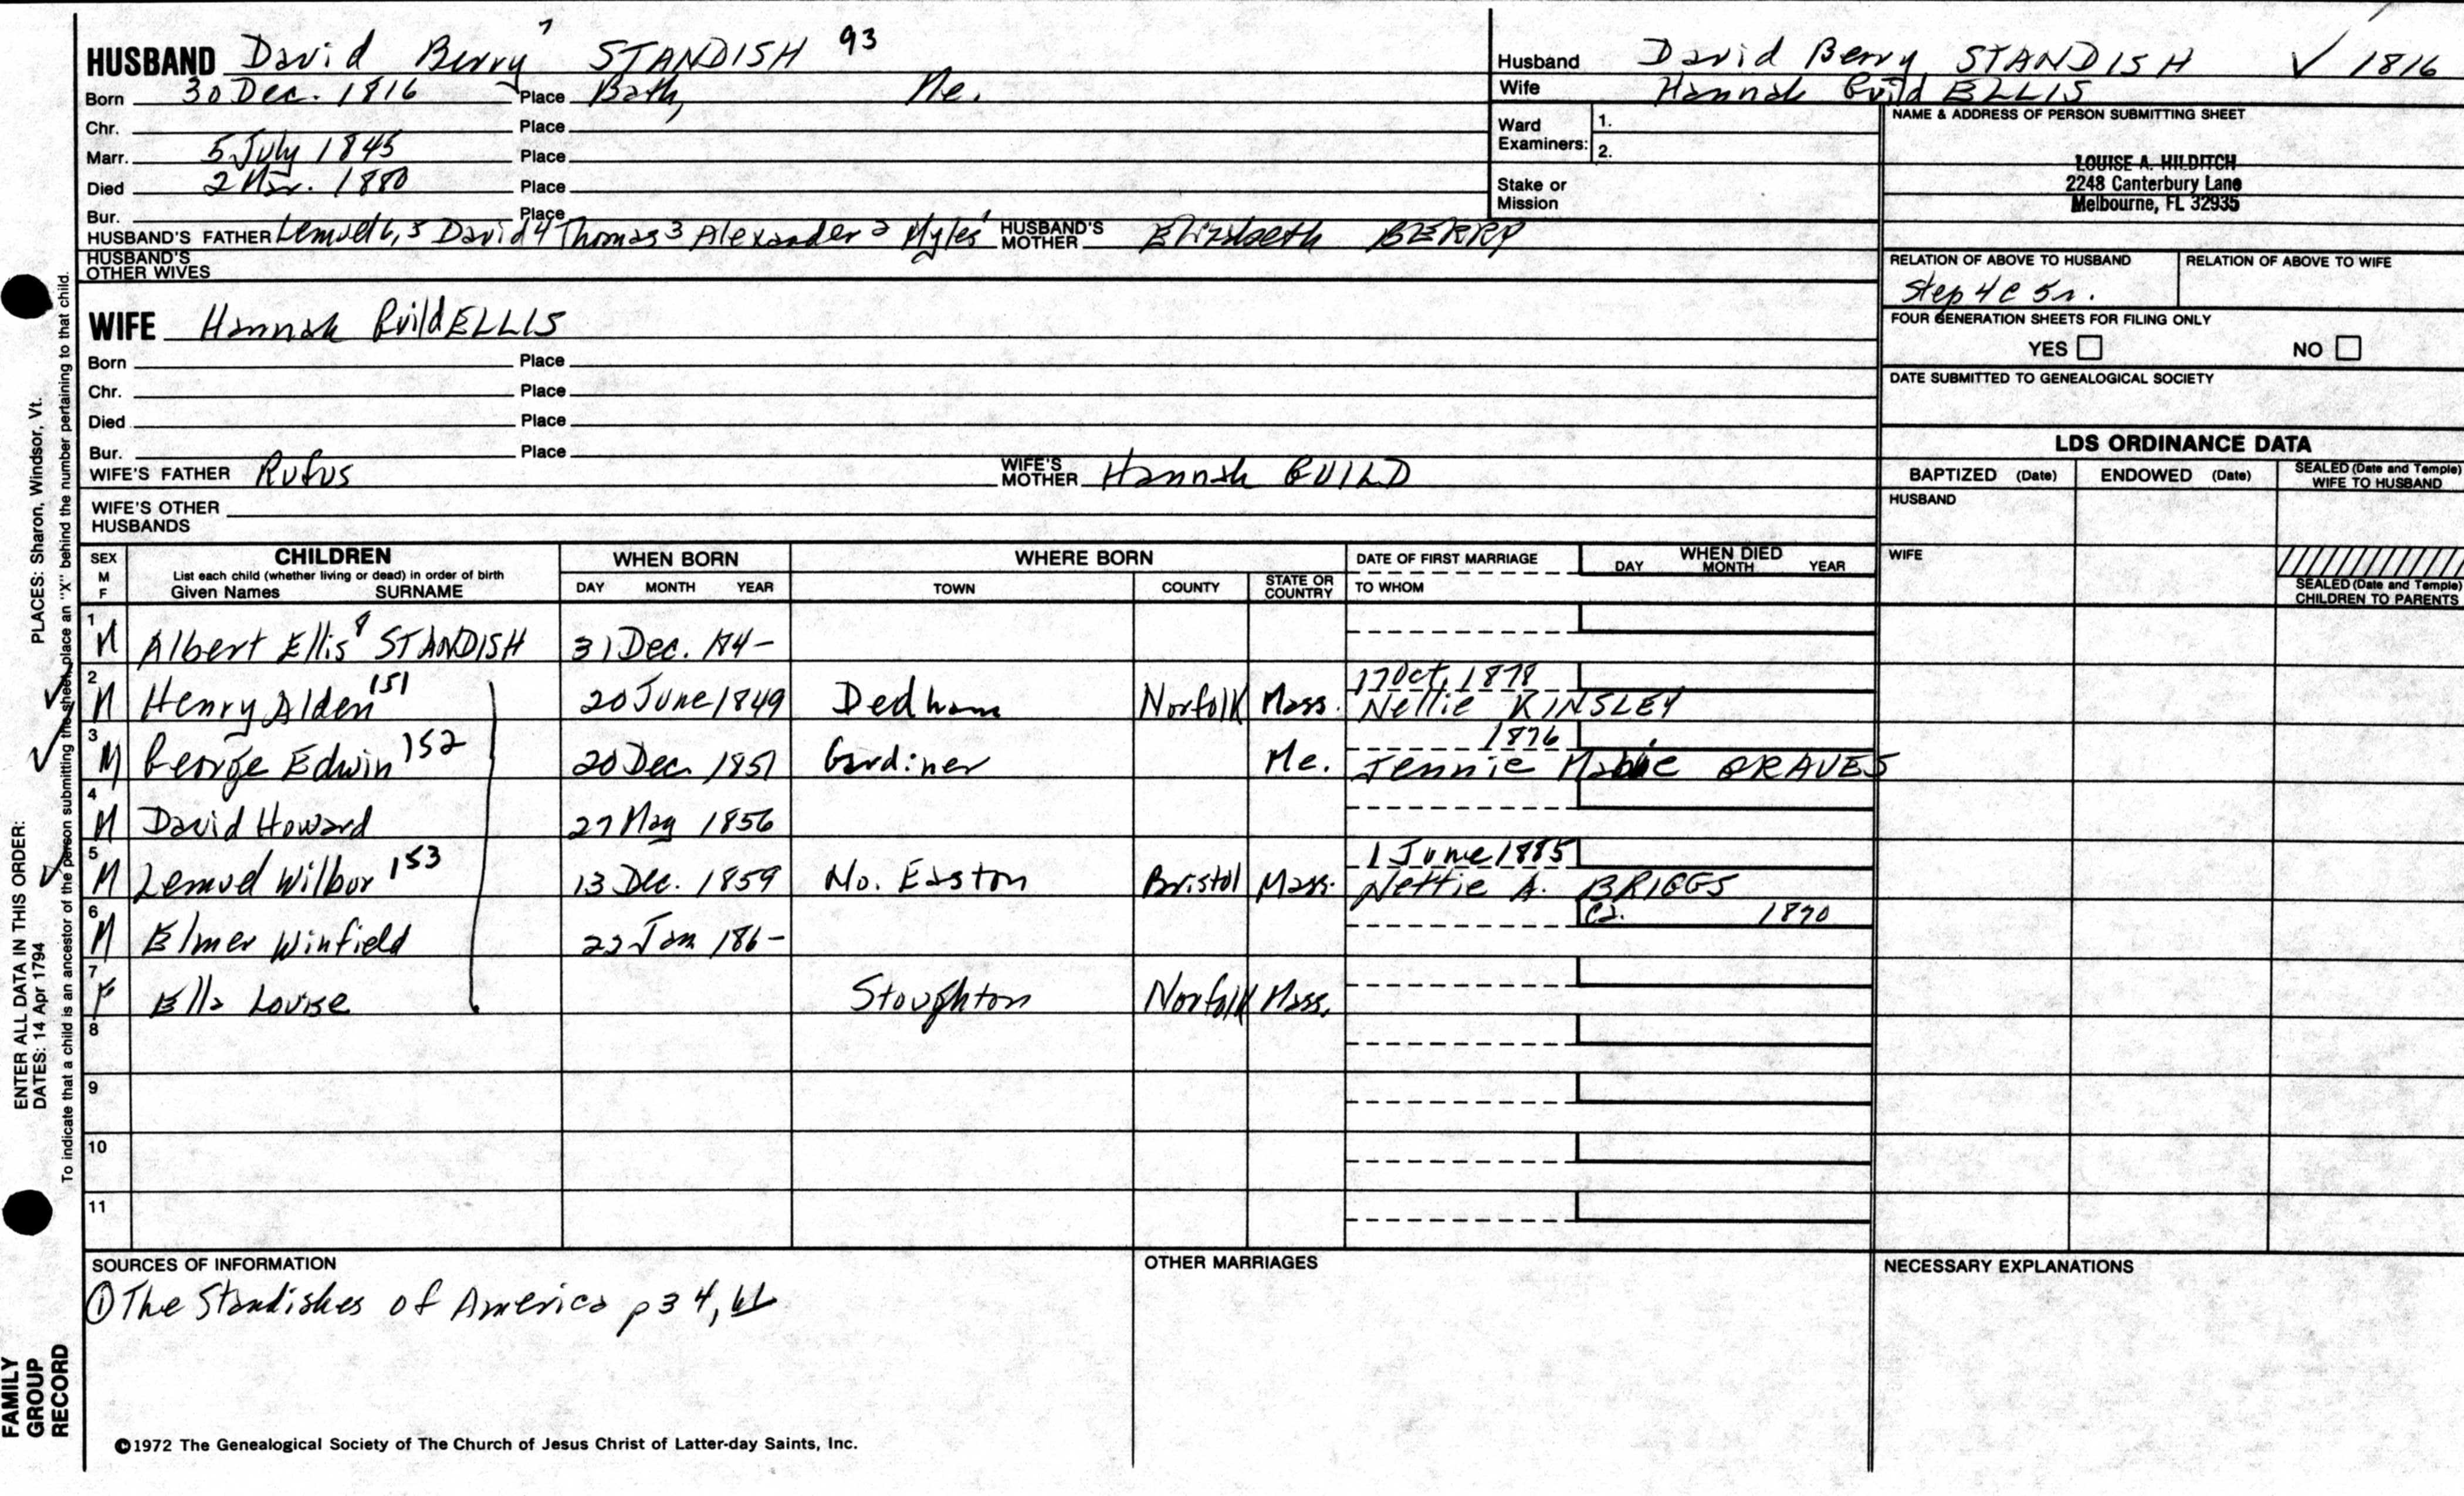 HUSBAND David Berry 7 STANDISH 93
Born 30 Dec. 1816 Place Bath, Me.
Chr. Place
Marr. 5 July 1845 Place
Died 2 Mar. 1880 Place
Bur. Place
HUSBAND'S FATHER Lemuel 6, 5 David 4 Thomas 3 Alexander 2 Myles 1 HUSBAND'S MOTHER Elizabeth BERRY
HUSBAND'S OTHER WIVES
Husband David Berry STANDISH ✓ 1816
Wife Hannah Guild ELLIS
Ward Examiners: 1.
2.
Stake or Mission
NAME & ADDRESS OF PERSON SUBMITTING SHEET
LOUISE A. HILDITCH
2248 Canterbury Lane
Melbourne, FL 32935
RELATION OF ABOVE TO HUSBAND RELATION OF ABOVE TO WIFE
Step 4 C 5r.
FOUR GENERATION SHEETS FOR FILING ONLY
YES NO
DATE SUBMITTED TO GENEALOGICAL SOCIETY
WIFE Hannah Guild ELLIS
Born Place
Chr. Place
Died Place
Bur. Place
WIFE'S FATHER Rufus WIFE'S MOTHER Hannah GUILD
WIFE'S OTHER HUSBANDS
LDS ORDINANCE DATA
BAPTIZED (Date) ENDOWED (Date) SEALED (Date and Temple) WIFE TO HUSBAND
HUSBAND
WIFE
SEALED (Date and Temple) CHILDREN TO PARENTS
SEX M F CHILDREN List each child (whether living or dead) in order of birth Given Names SURNAME WHEN BORN DAY MONTH YEAR WHERE BORN TOWN COUNTY STATE OR COUNTRY DATE OF FIRST MARRIAGE TO WHOM WHEN DIED DAY MONTH YEAR
1 M Albert Ellis 8 STANDISH 31 Dec. 184-
2 M Henry Alden 151 20 June 1849 Dedham Norfolk Mass. 17 Oct, 1878 Nellie KINSLEY
3 M George Edwin 152 20 Dec. 1851 Gardiner Me. 1876 Jennie GRAVES
4 M David Howard 27 May 1856
5 M Lemuel Wilbor 153 13 Dec. 1859 No. Easton Bristol Mass. 1 June 1885 Nettie A. BRIGGS
6 M Elmer Winfield 22 Jan 186- ca. 1870
7 F Ella Louise Stoughton Norfolk Mass.
8
9
10
11
SOURCES OF INFORMATION
① The Standishes of America p 34, 61
OTHER MARRIAGES
NECESSARY EXPLANATIONS
©1972 The Genealogical Society of The Church of Jesus Christ of Latter-day Saints, Inc.
ENTER ALL DATA IN THIS ORDER: PLACES: Sharon, Windsor, Vt.
DATES: 14 Apr 1794
To indicate that a child is an ancestor of the person submitting the sheet, place an "X" behind the number pertaining to that child.
FAMILY
GROUP
RECORD